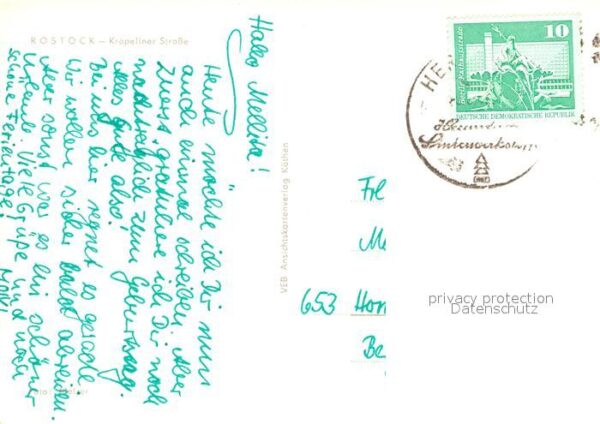 ROSTOCK — Kröpeliner Straße
Hallo Mellita!
Heute möchte ich Dir nun
auch einmal schreiben. Aber
Zuerst gratuliere ich Dir noch
nachträglich zum Geburtstag.
Alles gute also!
Bei uns hier regnet es gerade
Wir wollen sicher bald abreisen.
Aber sonst war es ein schöner
Urlaub. Viele Grüße und noch
schöne Ferientage!
VEB Ansichtskartenverlag Köthen
10
DEUTSCHE DEMOKRATISCHE REPUBLIK
653 Her
Be
privacy protection
Datenschutz